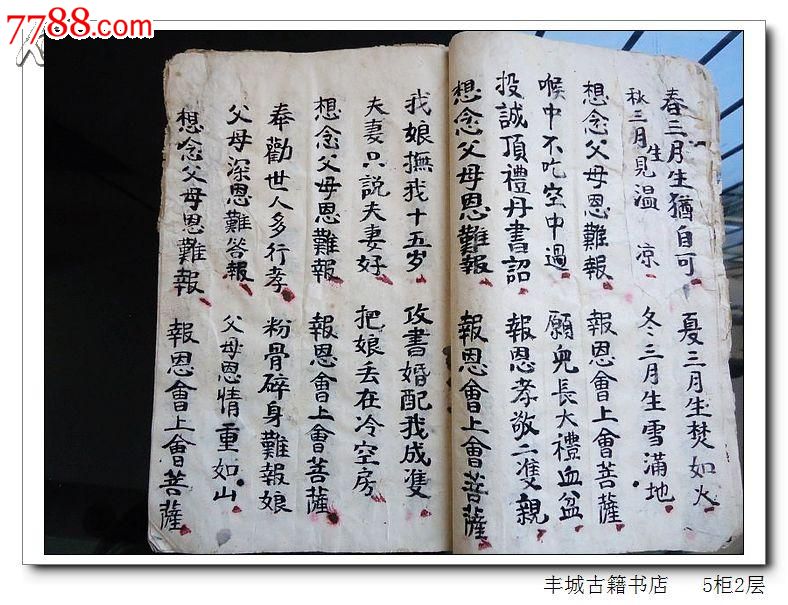 7788.com
春三月生猶自可 夏三月生焚如火
秋三月生見溫涼 冬三月生雪滿地
想念父母恩難報 報恩會上會菩薩
喉中不吃空中過 願兒長大禮血盆
投誠頂禮丹書詔 報恩孝敬二隻親
想念父母恩難報 報恩會上會菩薩
我娘撫我十五岁 攻書婚配我成隻
夫妻只說夫妻好 把娘丢在冷空房
想念父母恩難報 報恩會上會菩薩
奉勸世人多行孝 粉骨碎身難報娘
父母深恩難答報 父母恩情重如山
想念父母恩難報 報恩會上會菩薩
丰城古籍书店 5柜2层